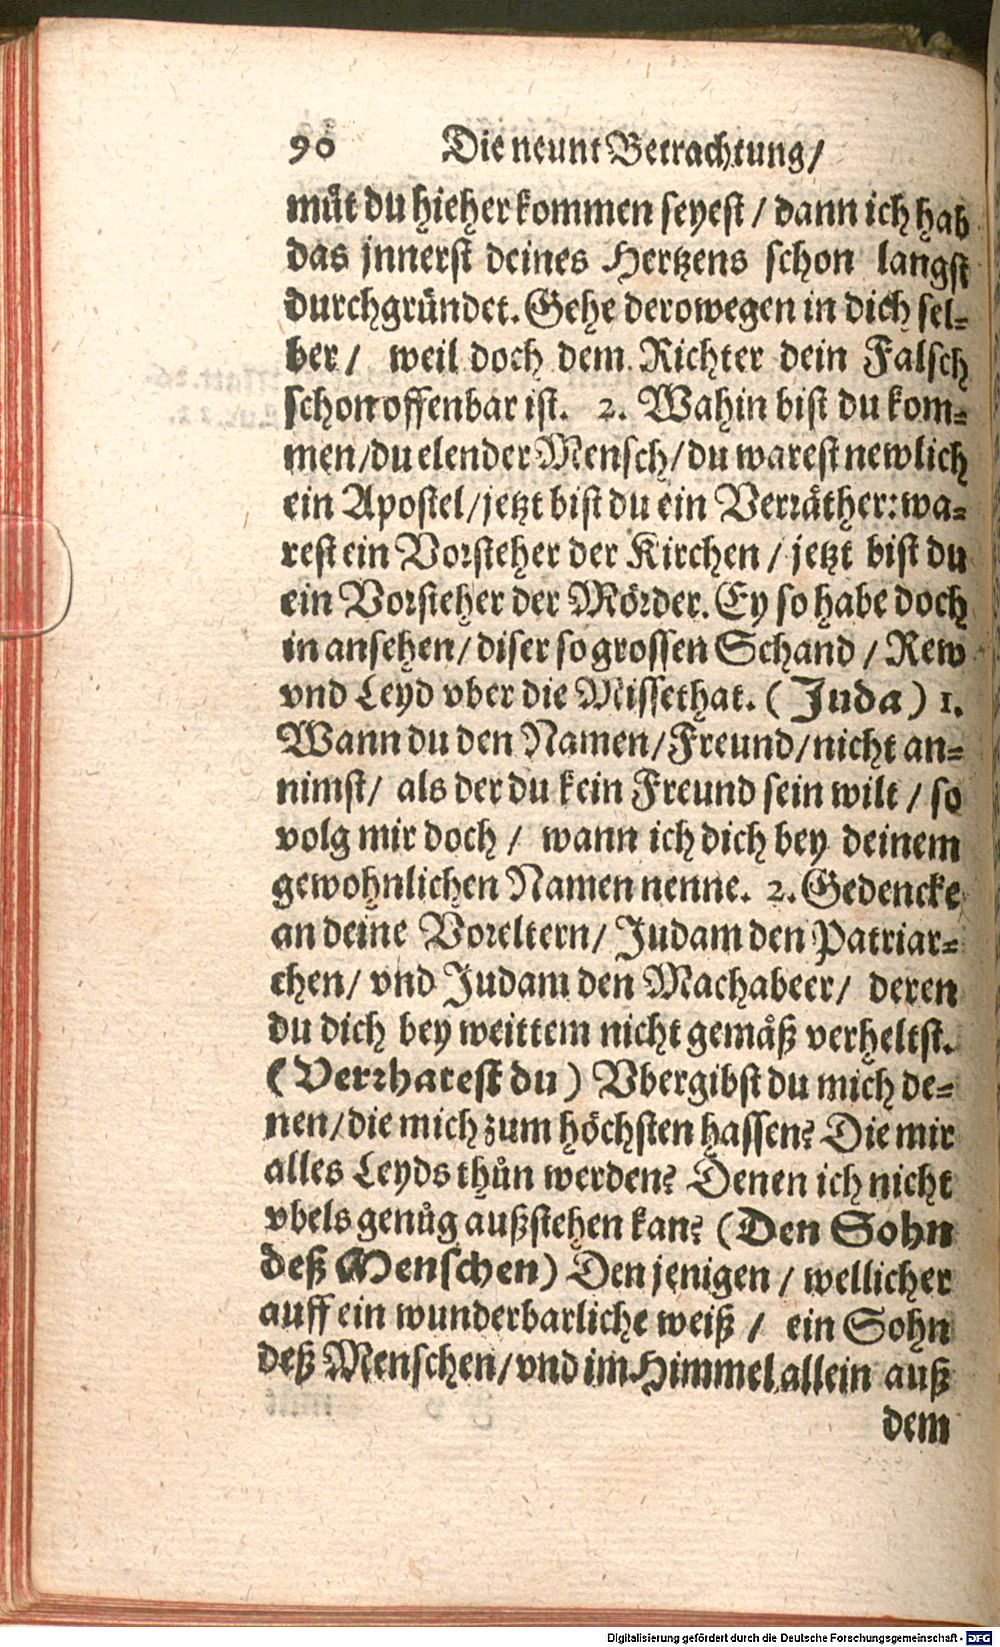 90 Die neunt Betrachtung/
muͤt du hieher kommen seyest / dann ich hab
das jnnerst deines Hertzens schon langst
durchgruͤndet. Gehe derowegen in dich sel-
ber / weil doch dem Richter dein Falsch
schon offenbar ist. 2. Wahin bist du kom-
men/du elender Mensch/du warest newlich
ein Apostel/jetzt bist du ein Verraͤther: wa-
rest ein Vorsteher der Kirchen / jetzt bist du
ein Vorsteher der Moͤrder. Ey so habe doch
in ansehen/ diser so grossen Schand / Rew
vnd Leyd vber die Missethat. ( Juda ) 1.
Wann du den Namen/Freund/nicht an-
nimst/ als der du kein Freund sein wilt / so
volg mir doch / wann ich dich bey deinem
gewohnlichen Namen nenne. 2. Gedencke
an deine Voreltern/ Judam den Patriar-
chen/ vnd Judam den Machabeer/ deren
du dich bey weittem nicht gemaͤß verheltst.
( Verrhatest du ) Vbergibst du mich de-
nen/die mich zum hoͤchsten hassen? Die mir
alles Leyds thuͦn werden? Denen ich nicht
vbels genuͦg außstehen kan? (Den Sohn
deß Menschen) Den jenigen / wellicher
auff ein wunderbarliche weiß / ein Sohn
deß Menschen/vnd im Himmel allein auß
dem
Digitalisierung gefördert durch die Deutsche Forschungsgemeinschaft - DFG